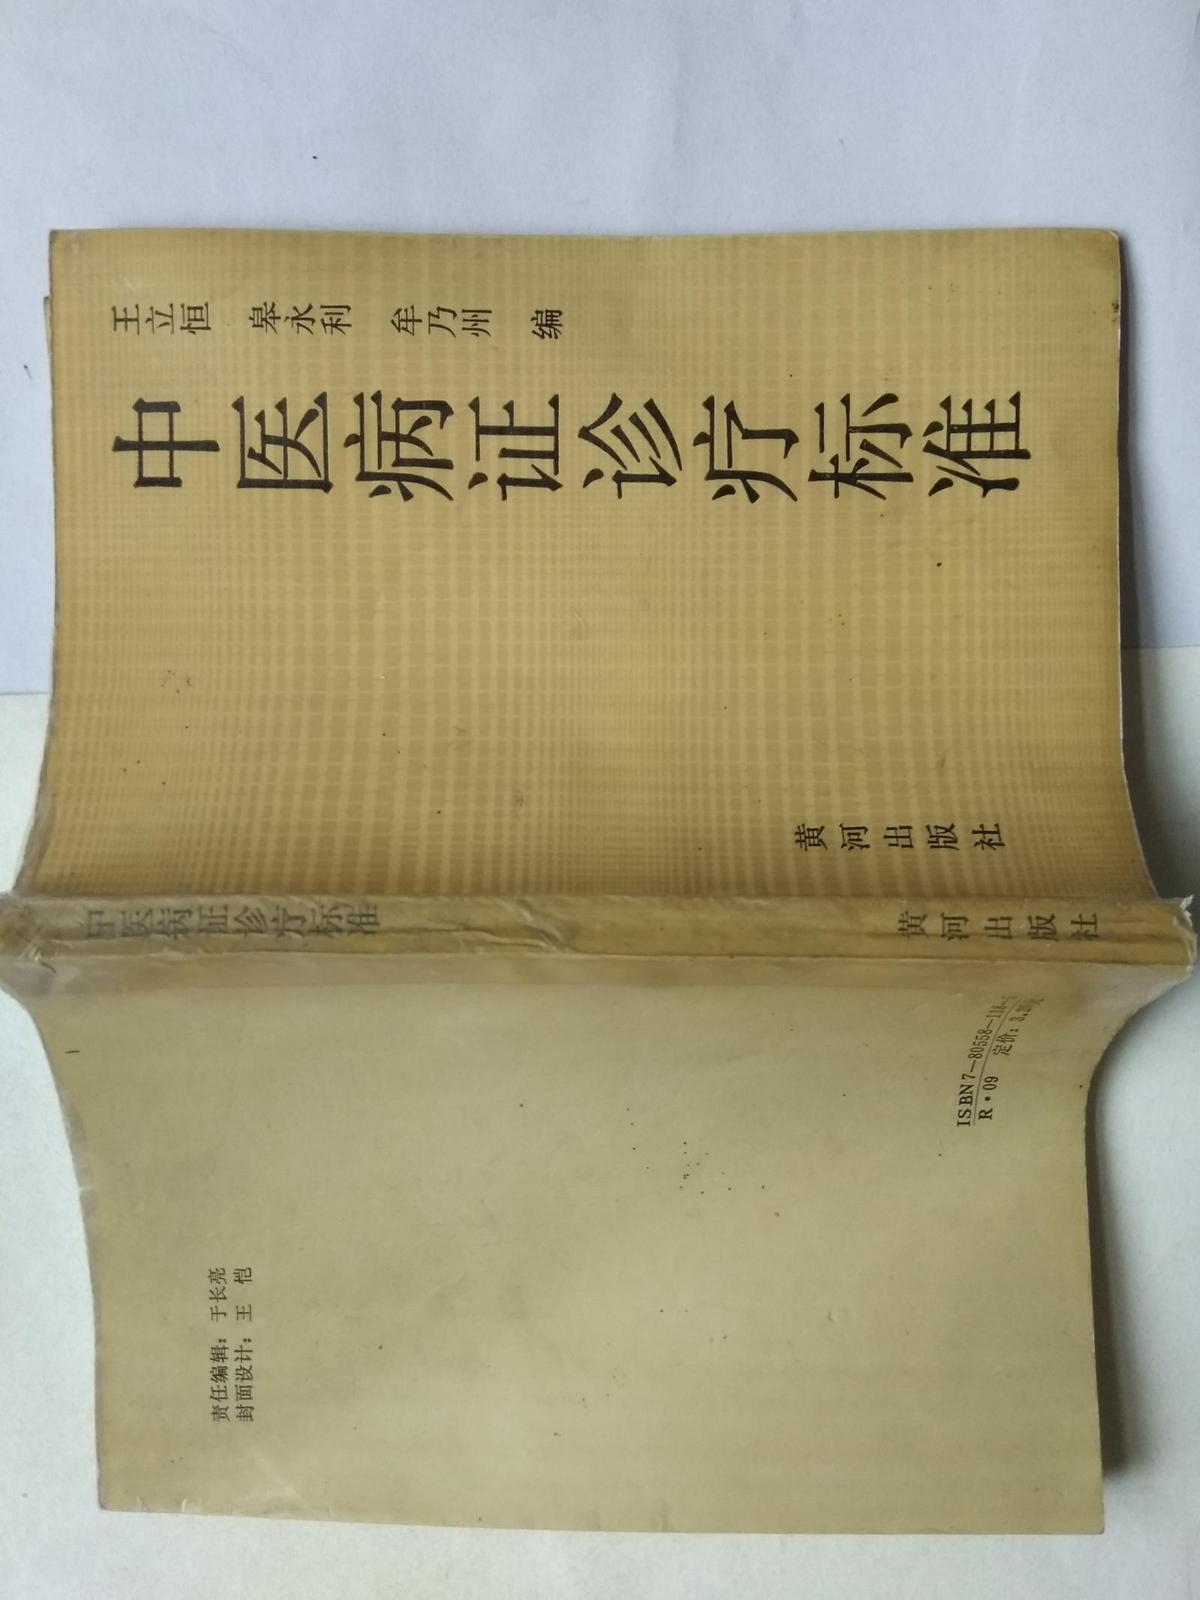 王立恒 皋永利 牟乃州 编
中医病证诊疗标准
黄河出版社
中医病证诊疗标准 黄河出版社
责任编辑：于长亮
封面设计：王 恺
ISBN7—80558—118—
R·09 定价：3.20元